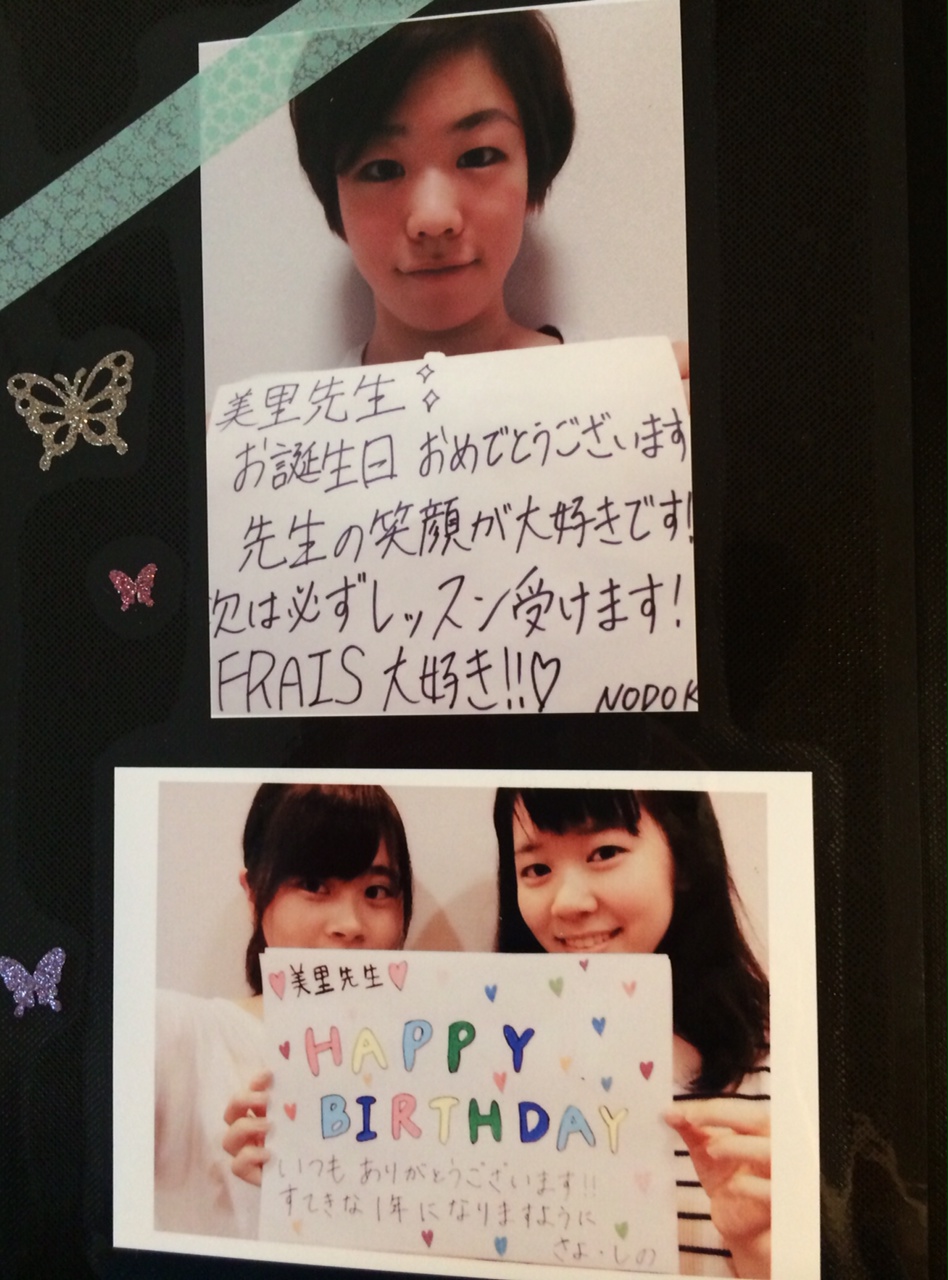 美里先生
お誕生日 おめでとうございます
先生の笑顔が大好きです!
次は必ずレッスン受けます!
FRAIS 大好き!!♡
NODOK
美里先生
HAPPY
BIRTHDAY
いつも ありがとうございます!!
すてきな 1年 に なりますように
さよ・しの